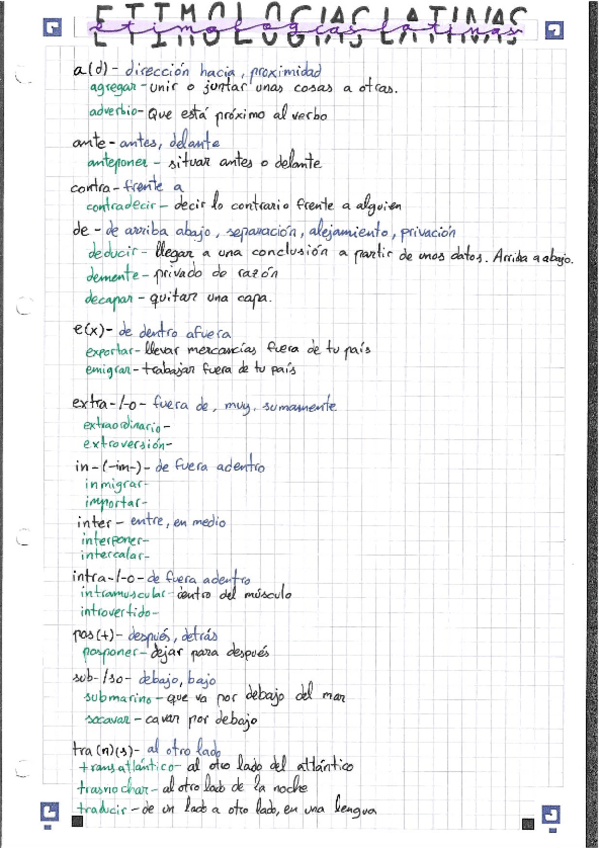 ETIMOLOGIAS LATINAS
etimologicas latinas
a(d) - dirección hacia, proximidad
agregar - unir o juntar unas cosas a otras.
adverbio - Que está próximo al verbo
ante - antes, delante
anteponer - situar antes o delante
contra - frente a
contradecir - decir lo contrario frente a alguien
de - de arriba abajo, separación, alejamiento, privación
deducir - llegar a una conclusión a partir de unos datos. Arriba a abajo.
demente - privado de razón
decapar - quitar una capa.
e(x) - de dentro afuera
exportar - llevar mercancías fuera de tu país
emigrar - trabajar fuera de tu país
extra-/-o- fuera de, muy, sumamente
extraordinario -
extroversión -
in-(-im-) - de fuera adentro
inmigrar -
importar -
inter - entre, en medio
interponer -
intercalar -
intra-/-o- de fuera adentro
intramuscular - dentro del músculo
introvertido -
pos(t) - después, detrás
posponer - dejar para después
sub-/so- debajo, bajo
submarino - que va por debajo del mar
socavar - cavar por debajo
tra(n)(s) - al otro lado
transatlántico - al otro lado del atlántico
trasnochar - al otro lado de la noche
traducir - de un lado a otro lado, en una lengua